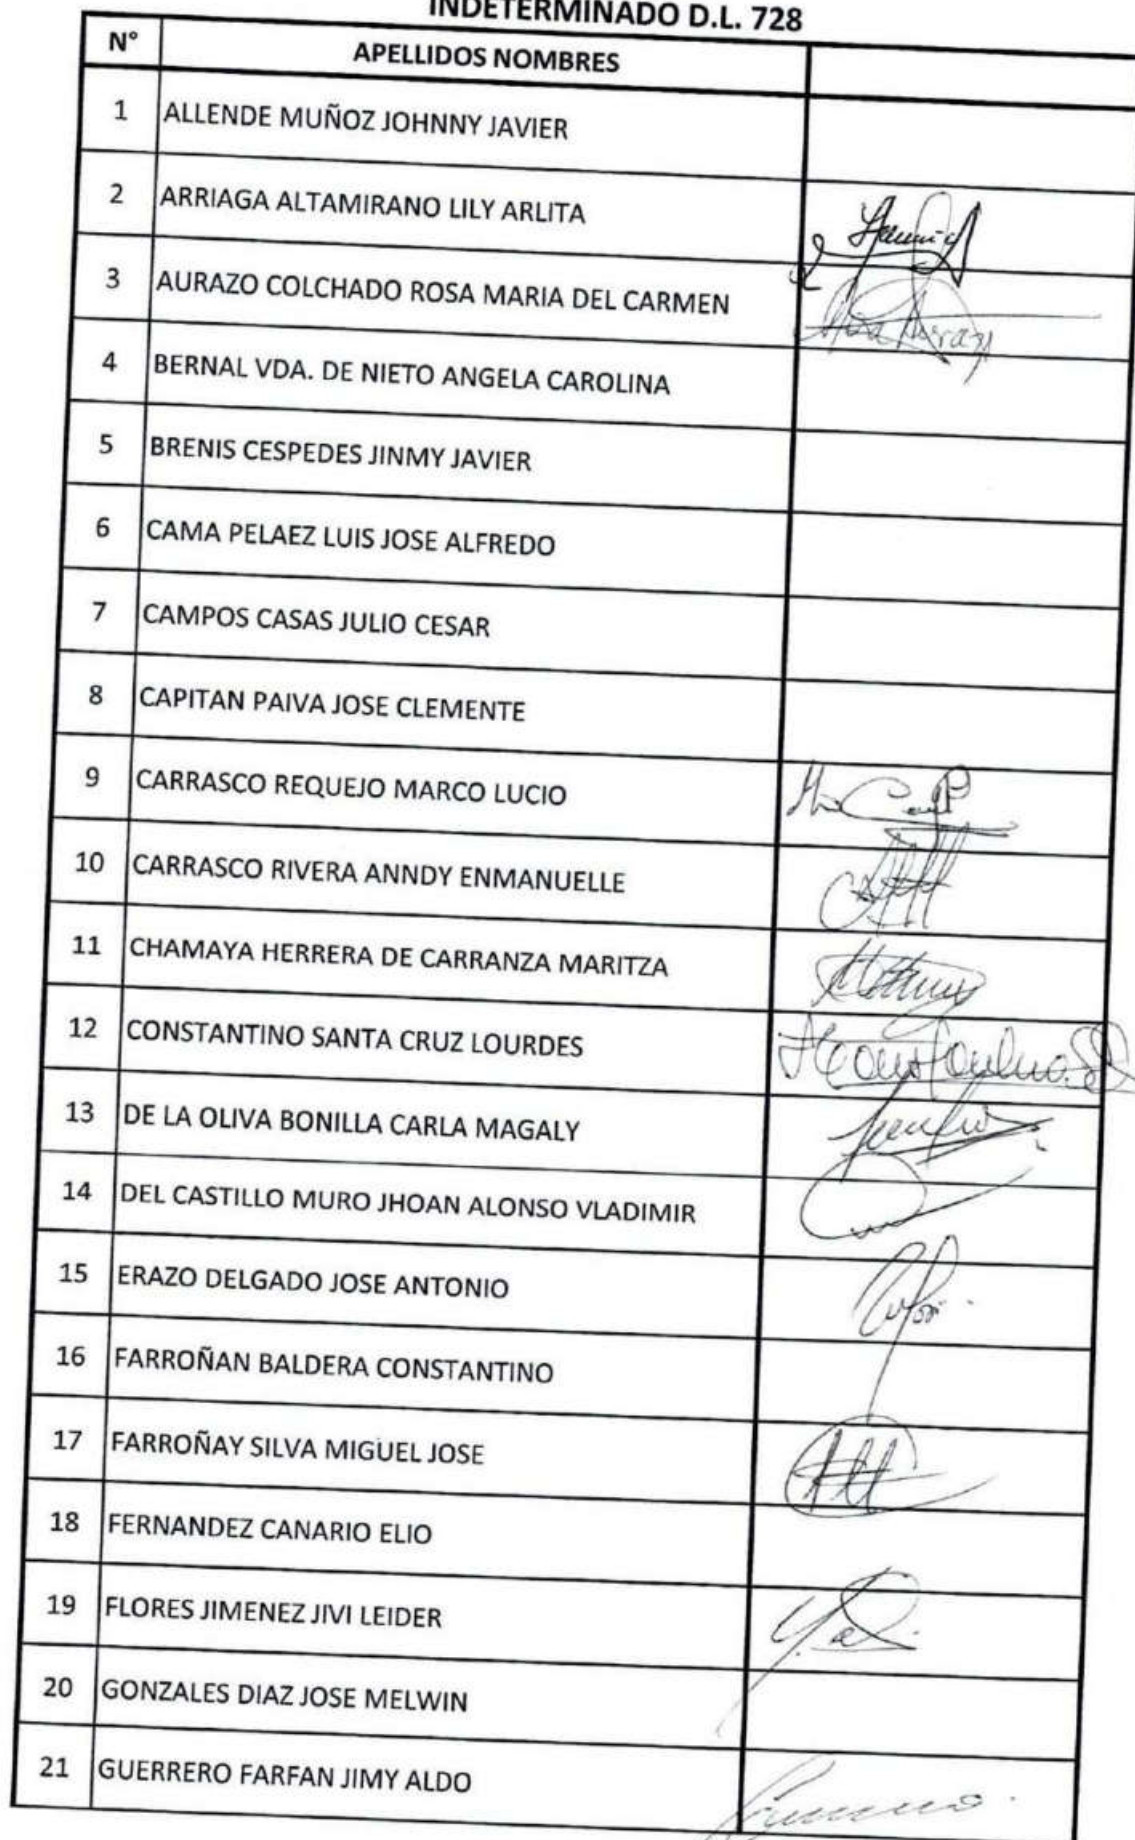 INDETERMINADO D.L. 728
N° APELLIDOS NOMBRES
1 ALLENDE MUÑOZ JOHNNY JAVIER
2 ARRIAGA ALTAMIRANO LILY ARLITA
3 AURAZO COLCHADO ROSA MARIA DEL CARMEN
4 BERNAL VDA. DE NIETO ANGELA CAROLINA
5 BRENIS CESPEDES JINMY JAVIER
6 CAMA PELAEZ LUIS JOSE ALFREDO
7 CAMPOS CASAS JULIO CESAR
8 CAPITAN PAIVA JOSE CLEMENTE
9 CARRASCO REQUEJO MARCO LUCIO
10 CARRASCO RIVERA ANNDY ENMANUELLE
11 CHAMAYA HERRERA DE CARRANZA MARITZA
12 CONSTANTINO SANTA CRUZ LOURDES
13 DE LA OLIVA BONILLA CARLA MAGALY
14 DEL CASTILLO MURO JHOAN ALONSO VLADIMIR
15 ERAZO DELGADO JOSE ANTONIO
16 FARROÑAN BALDERA CONSTANTINO
17 FARROÑAY SILVA MIGUEL JOSE
18 FERNANDEZ CANARIO ELIO
19 FLORES JIMENEZ JIVI LEIDER
20 GONZALES DIAZ JOSE MELWIN
21 GUERRERO FARFAN JIMY ALDO